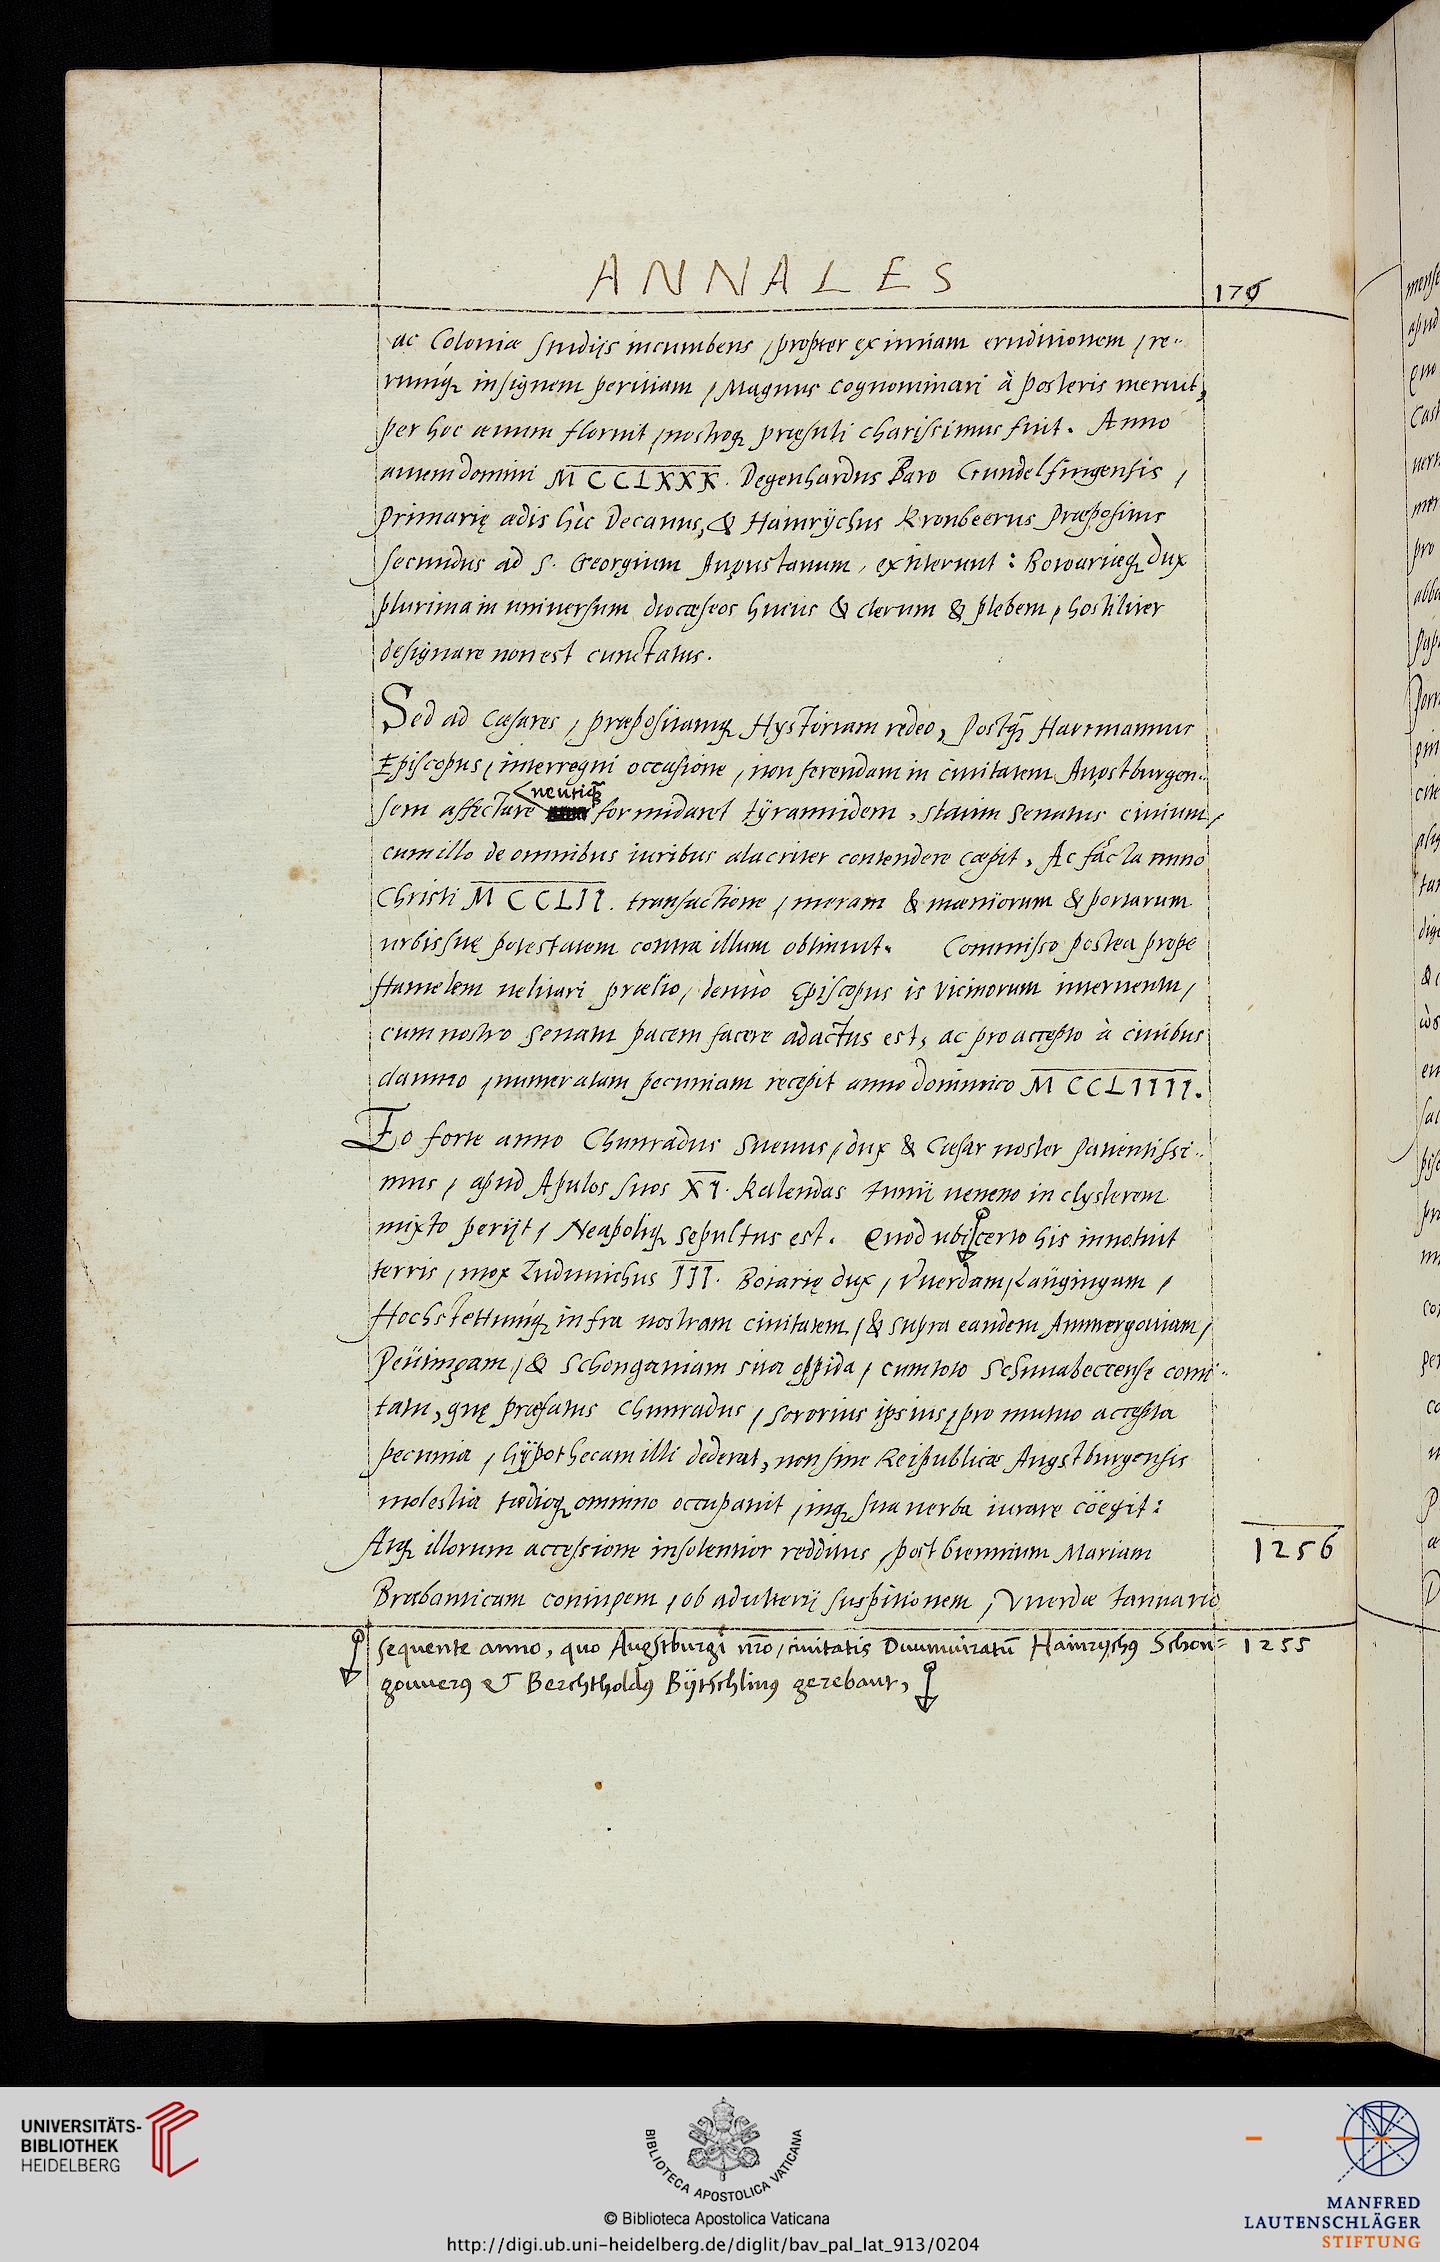 ANNALES
176
ac Coloniæ studijs incumbens, propter eximiam eruditionem, re-
rumq́; insignem peritiam, Magnus cognominari à posteris meruit,
per hoc æuum floruit, nostroq; præsuli charissimus fuit. Anno
autem domini MCCLXXX. Degenhardus Baro Gundelfingensis,
Primarię ædis hîc Decanus, & Hainrÿchus Kronbeerus Præpositus
secundus ad S. Georgium Augustanum, extiterunt: Boioariæq; dux
plurima in uniuersum diocæseos huius & clerum & plebem, hostiliter
designare non est cunctatus.
Sed ad Cæsares, præpositamq; Hystoriam redeo, Postq̃ Harrmannus
Episcopus, interregni occasione, non ferendam in ciuitatem Augstburgen-
neutiq̃
sem affectare formidaret tÿrannidem, statim Senatus ciuium,
cum illo de omnibus iuribus alacriter contendere cæpit. Ac facta anno
Christi MCCLII. transactione, meram & mæniorum & portarum
urbis suę potestatem contra illum obtinuit. Commisso postea prope
Hamelem uelitari prælio, denuò Episcopus is vicinorum interuentu,
cum nostro Senatu pacem facere adactus est, ac pro accepto à ciuibus
damno, numeratam pecuniam recepit anno dominico MCCLIIII.
Eo forte anno Chunradus Sueuus, dux & Cæsar noster Patientissi-
mus, apud Apulos suos XI. Kalendas Iunii ueneno in clysterem
mixto perijt, Neapoliq; sepultus est. Quod ubi certo his innotuit
terris, mox Luduuichus III. Boiarię dux, Vuerdam, Laügingam,
Hochstettumq́; infra nostram ciuitatem, & supra eandem Ammergouiam,
Peütingam, & Schongauiam siua oppida, cum toto Schuuabeccense comi-
tatu, quę præfatus Chunradus, sororius ipsius, pro mutuo accepta
pecunia, hÿpothecam illi dederat, non sine Reipublicæ Augstburgensis
molestia tædioq; omnino occupauit, inq; sua uerba iurare cöegit:
Atq; illorum accessione insolentior redditus, post biennium Mariam
1256
Brabanticam coniugem, ob adulterij suspitionem, Vuerdæ Ianuario
sequente anno, quo Augstburgi nr̃o, ciuitatis Duumuiratũ Hainrychꝰ Schon-
1255
gouuerꝰ & Berchtholdꝰ Bÿtschlinꝰ gerebant,
UNIVERSITÄTS-
BIBLIOTHEK
HEIDELBERG
BIBLIOTECA APOSTOLICA VATICANA
© Biblioteca Apostolica Vaticana
http://digi.ub.uni-heidelberg.de/diglit/bav_pal_lat_913/0204
MANFRED
LAUTENSCHLÄGER
STIFTUNG